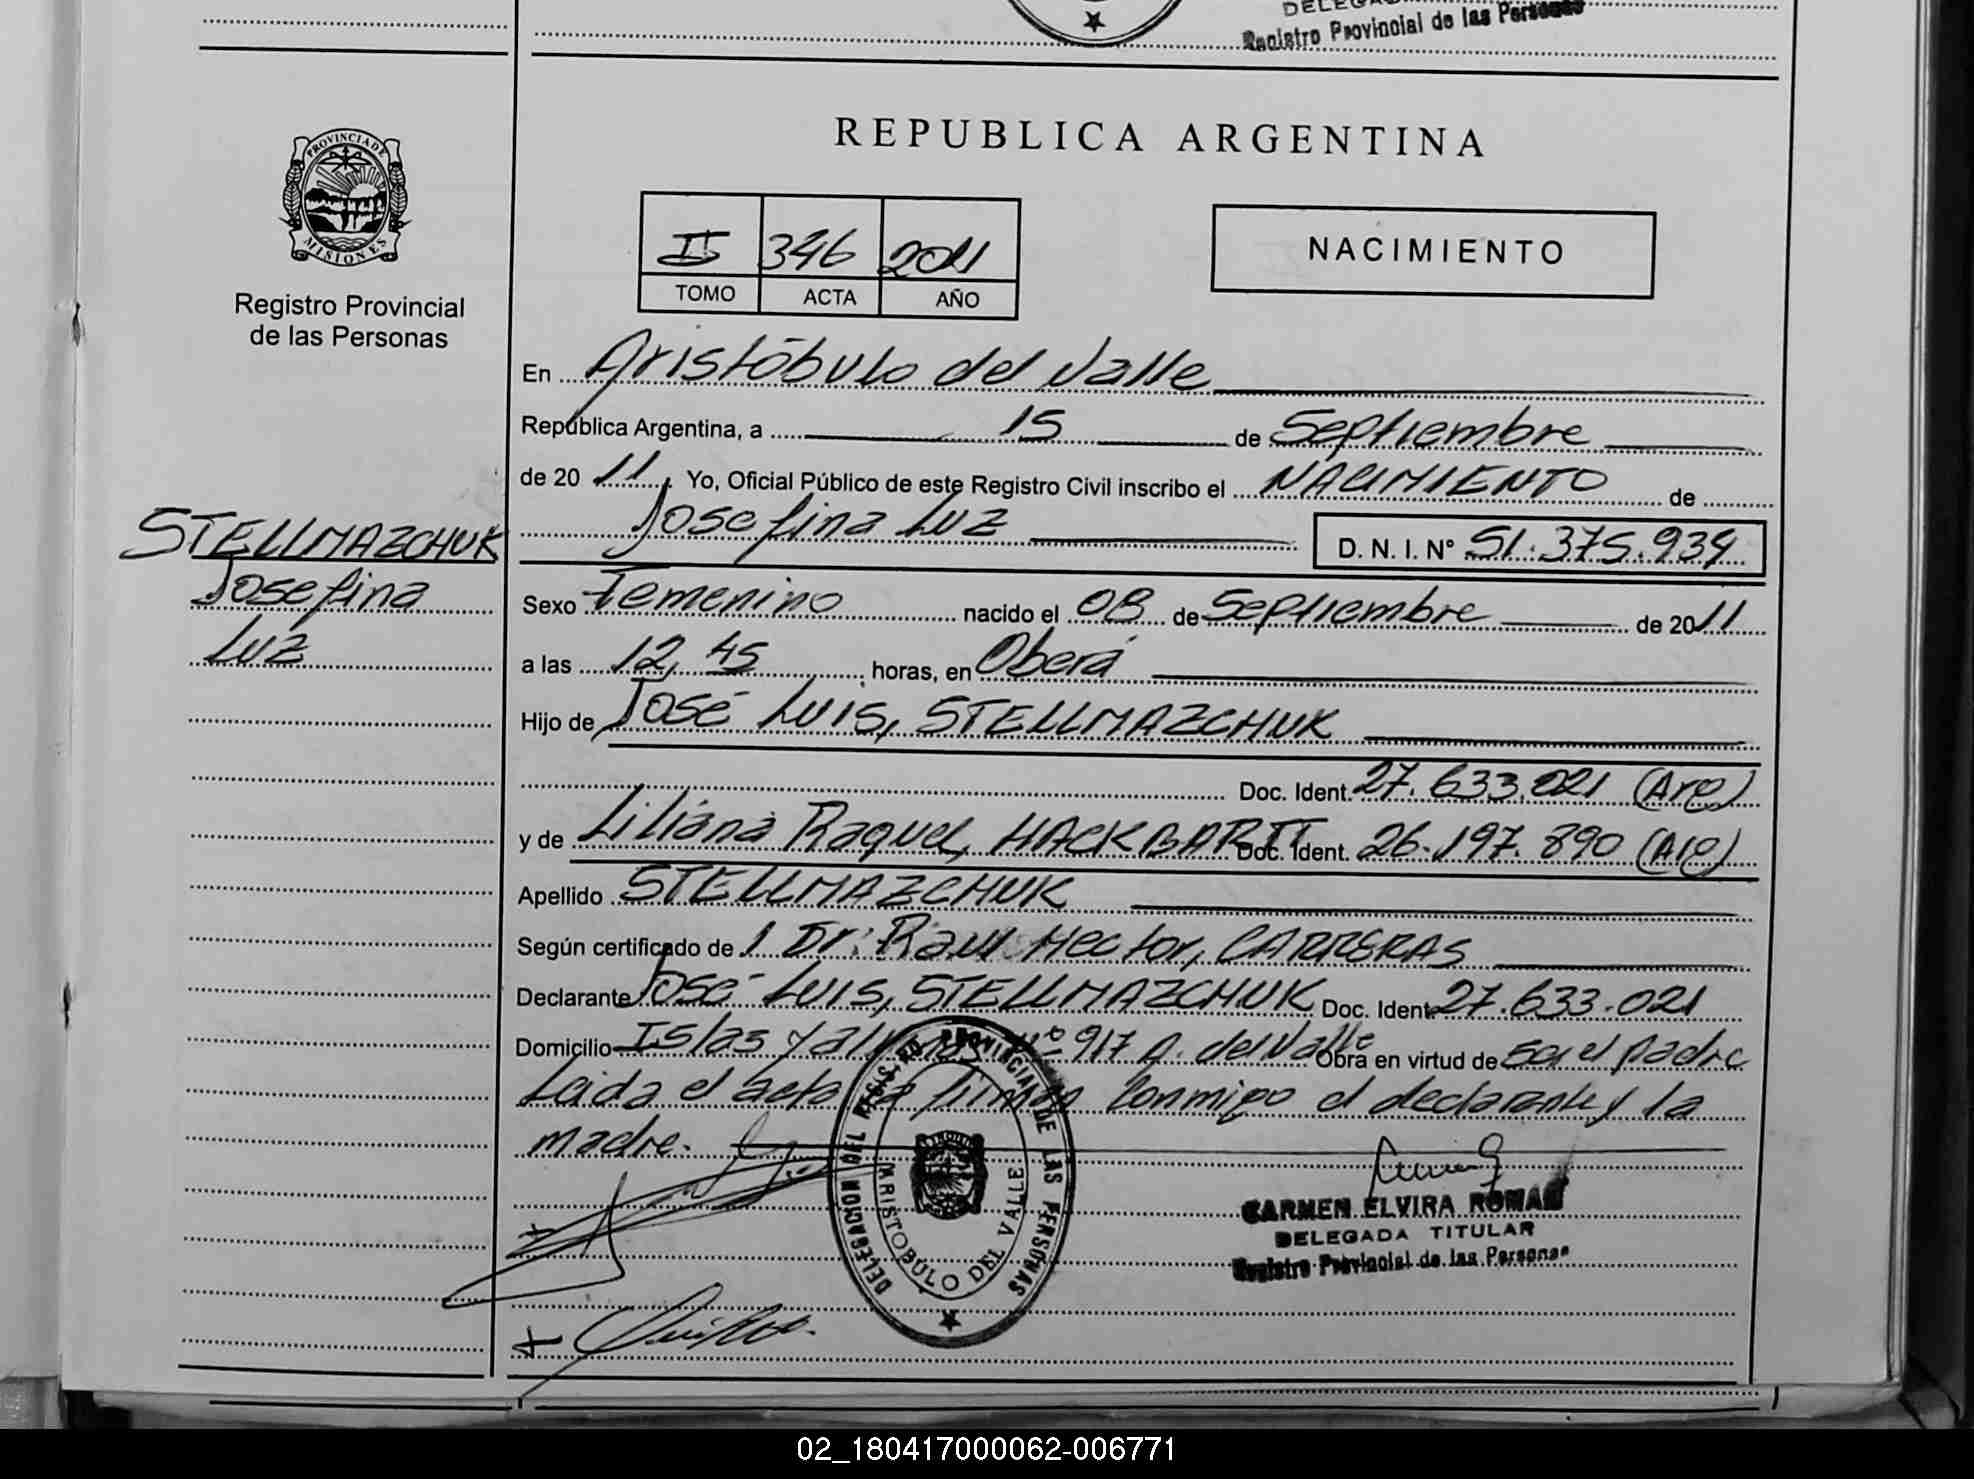 DELEGA
Registro Provincial de las Personas
PROVINCIA DE
MISIONES
Registro Provincial
de las Personas
REPUBLICA ARGENTINA
II 346 2011
TOMO ACTA AÑO
NACIMIENTO
En Aristóbulo del Valle
República Argentina, a 15 de Septiembre
de 20 11. Yo, Oficial Público de este Registro Civil inscribo el NACIMIENTO de
Josefina Luz D. N. I. Nº 51.375.934
STELLMAZCHUK
Josefina
Luz
Sexo Femenino nacido el 08 de Septiembre de 2011
a las 12,45 horas, en Oberá
Hijo de José Luis, STELLMAZCHUK
Doc. Ident. 27.633.021 (Arg)
y de Liliana Raquel, HACKBARTT Doc. Ident. 26.197.890 (Arg)
Apellido STELLMAZCHUK
Según certificado de / Dr: Raul Hector, CARRERAS
Declarante José Luis, STELLMAZCHUK Doc. Ident. 27.633.021
Domicilio Islas Nº 917 A. del Valle Obra en virtud de ser el padre
Leida el acta la firman conmigo el declarante y la
madre.
DELEGACION DEL REGISTRO PROVINCIAL DE LAS PERSONAS
ARISTOBULO DEL VALLE
CARMEN ELVIRA ROMAN
DELEGADA TITULAR
Registro Provincial de las Personas
02_180417000062-006771